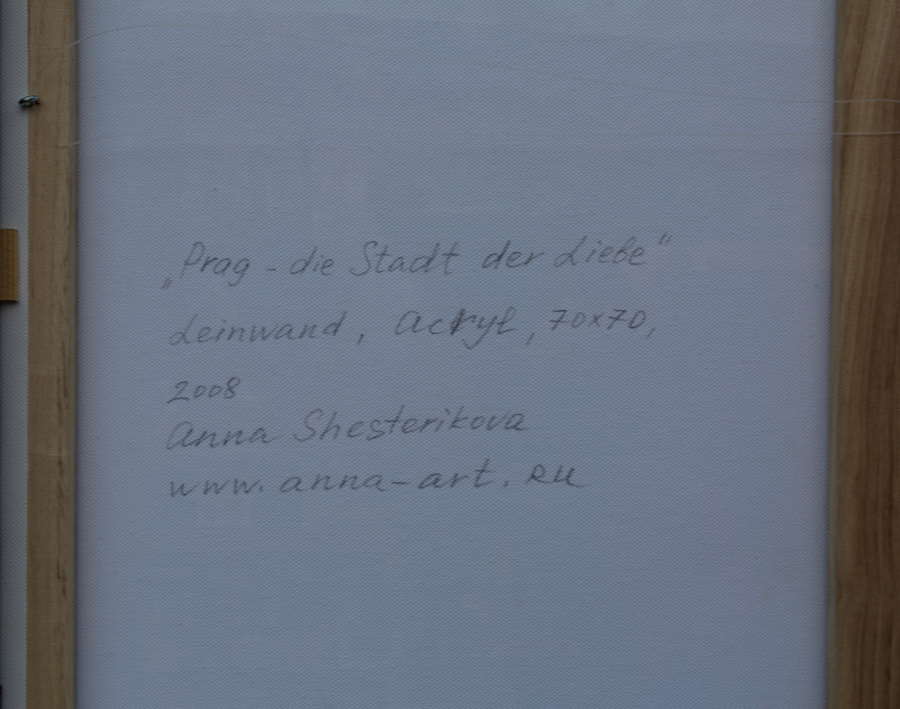 „Prag - die Stadt der Liebe“
Leinwand, Acryl, 70x70,
2008
Anna Shesterikova
www.anna-art.ru